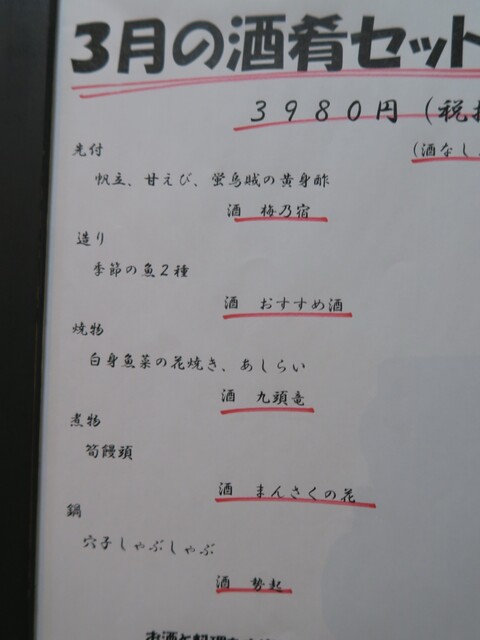 3月の酒肴セット
3980円（税抜
（酒なし
先付
帆立、甘えび、蛍烏賊の黄身酢
酒　梅乃宿
造り
季節の魚2種
酒　おすすめ酒
焼物
白身魚菜の花焼き、あしらい
酒　九頭竜
煮物
筍饅頭
酒　まんさくの花
鍋
穴子しゃぶしゃぶ
酒　勢起
お酒と料理